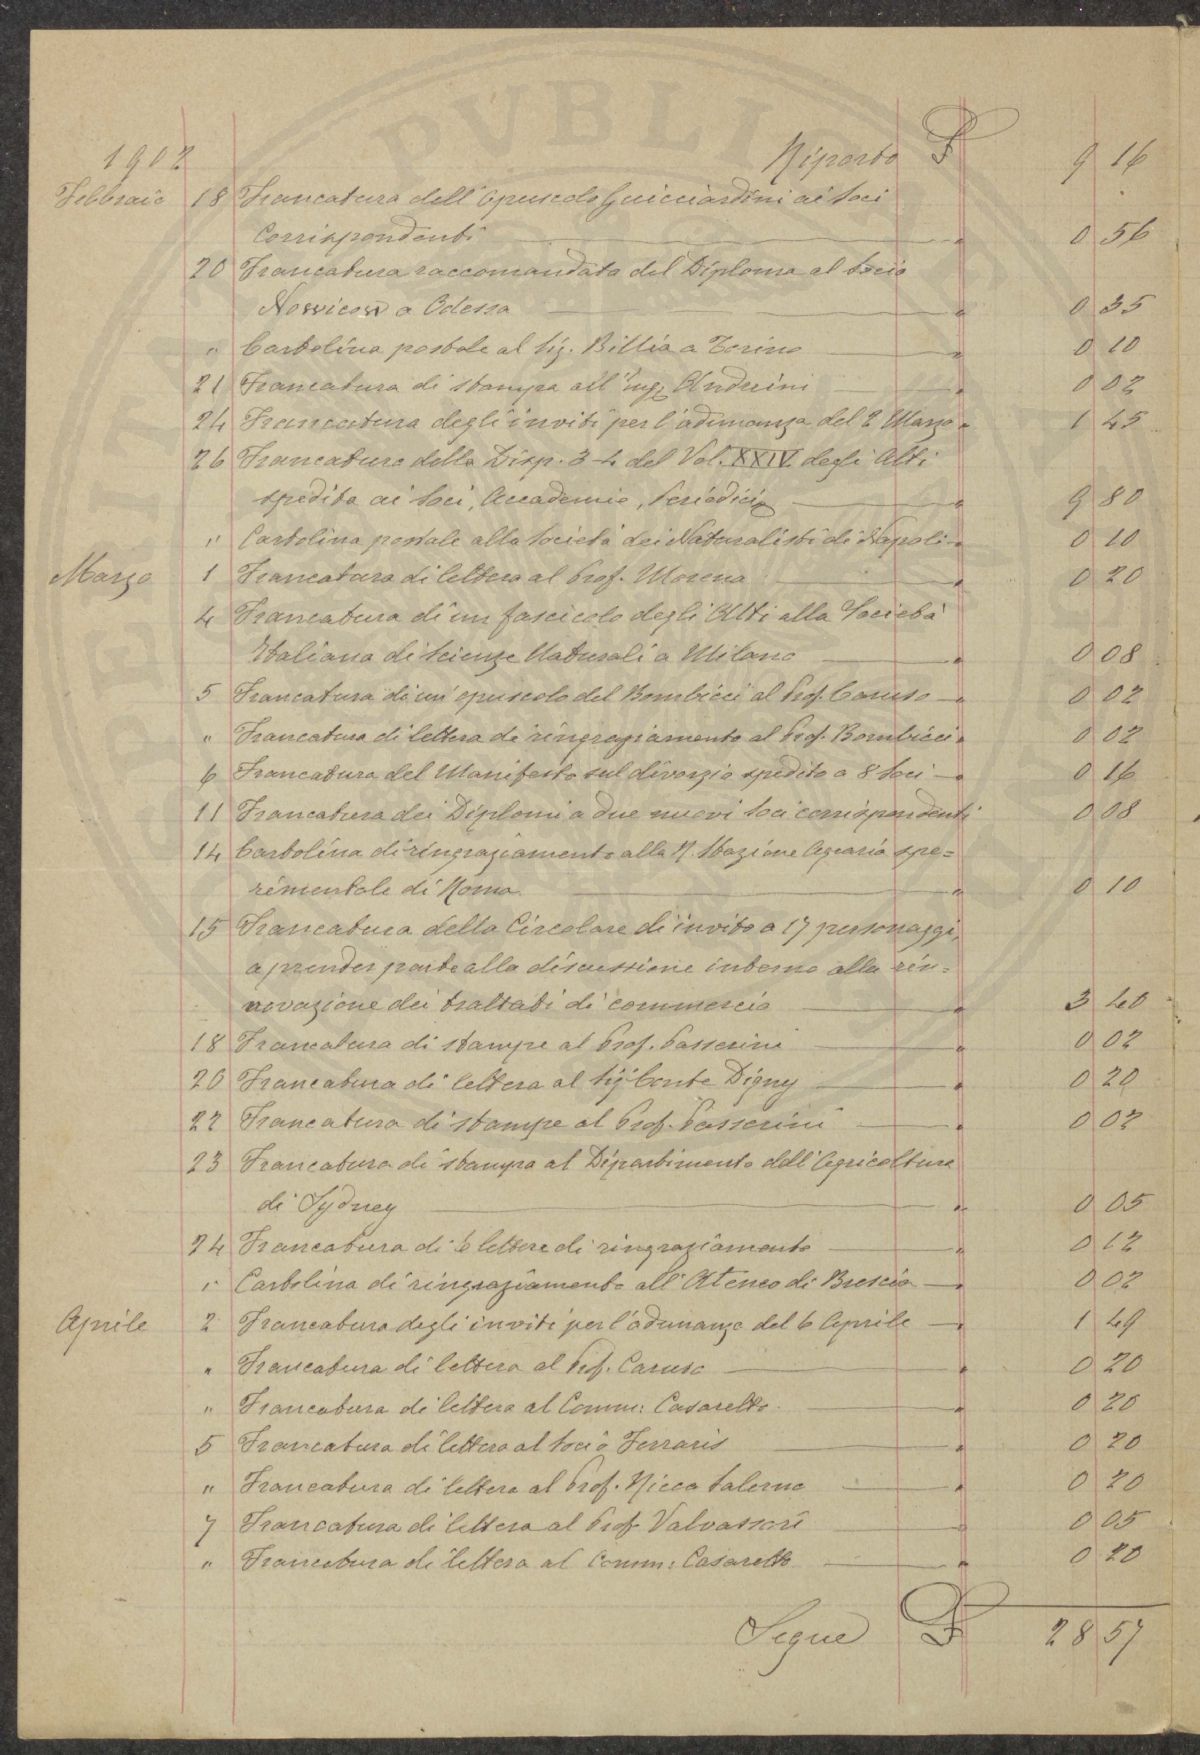 1902 Riporto £ 9 16
Febbraio 18 Francatura dell'Opuscolo Guicciardini ai Soci
Corrispondenti " 0 56
20 Francatura raccomandata del Diploma al Socio
Novvicow a Odessa " 0 35
" Cartolina postale al Sig. Billia a Torino " 0 10
21 Francatura di stampa all'Ing. Andreini " 0 02
24 Francatura degli inviti per l'adunanza del 2 Marzo " 1 45
26 Francatura della Disp. 3-4 del Vol. XXIV degli Atti
spedita ai Soci, Accademie, Periodici " 9 80
" Cartolina postale alla Società dei Naturalisti di Napoli " 0 10
Marzo 1 Francatura di lettera al Prof. Morena " 0 20
4 Francatura di un fascicolo degli Atti alla Società
Italiana di Scienze Naturali a Milano " 0 08
5 Francatura di un opuscolo del Bombicci al Prof. Caruso " 0 02
" Francatura di lettera di ringraziamento al Prof. Bombicci " 0 02
6 Francatura del Manifesto sul divorzio spedito a 8 Soci " 0 16
11 Francatura dei Diplomi a due nuovi Soci corrispondenti 0 08
14 Cartolina di ringraziamento alla R. Stazione Agraria spe=
rimentale di Roma " 0 10
15 Francatura della Circolare di invito a 17 personaggi,
a prender parte alla discussione intorno alla rin=
novazione dei trattati di commercio " 3 40
18 Francatura di stampe al Prof. Passerini " 0 02
20 Francatura di lettera al Sig. Conte Digny " 0 20
22 Francatura di stampe al Prof. Passerini " 0 02
23 Francatura di stampa al Dipartimento dell'Agricoltura
di Sydney " 0 05
24 Francatura di 6 lettere di ringraziamento " 0 12
" Cartolina di ringraziamento all'Ateneo di Brescia " 0 02
Aprile 2 Francatura degli inviti per l'adunanza del 6 Aprile " 1 49
" Francatura di lettera al Prof. Caruso " 0 20
" Francatura di lettera al Comm: Casaretto " 0 20
5 Francatura di lettera al Socio Ferraris " 0 20
" Francatura di lettera al Prof. Ricca Salerno " 0 20
7 Francatura di lettera al Prof. Valvassori " 0 05
" Francatura di lettera al Comm: Casaretto " 0 20
Segue £ 28 57